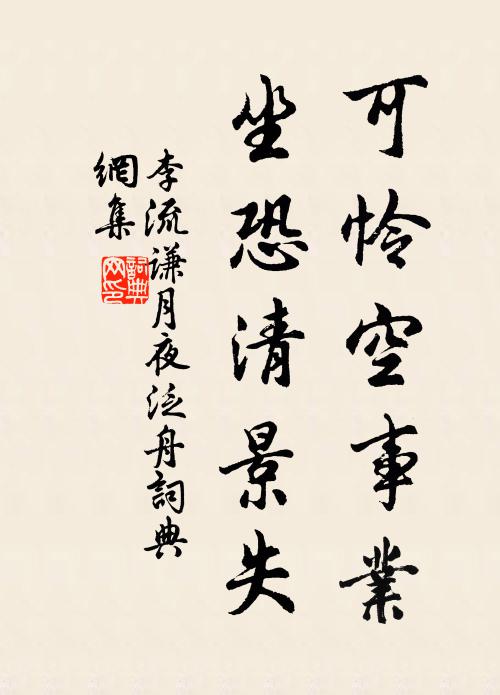 可怜空事業
坐恐清景失
李流谦月夜泛舟詞典
網集
詞典
网印